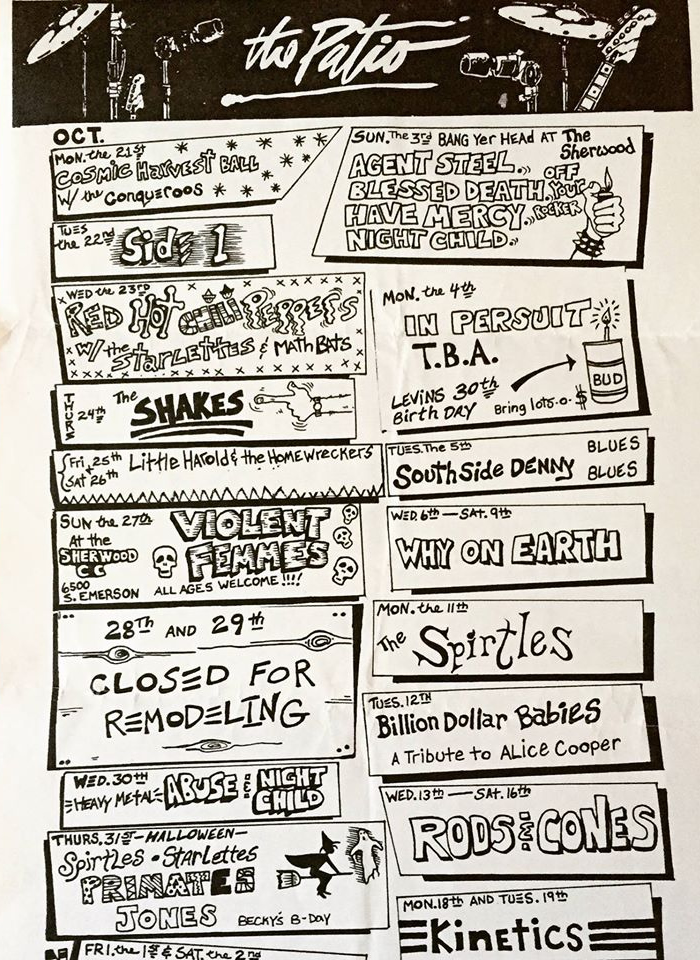 the Patio
OCT.
MON. the 21st
COSMIC HARVEST BALL
W/ the Conqueroos
TUES
the 22nd
Side 1
WED the 23rd
RED HOT CHILI PEPPERS
W/ the STARLETTES & MATH BATS
THURS 24th The SHAKES
Fri, 25th
SAT 26th
Little Harold & the HOMEWRECKERS
SUN the 27th
At the
SHERWOOD
CC
6500
S. EMERSON
VIOLENT
FEMMES
ALL AGES WELCOME!!!!
28th AND 29th
CLOSED FOR
REMODELING
WED. 30th
HEAVY METAL ABUSE & NIGHT CHILD
THURS, 31st - HALLOWEEN -
Spirtles • Starlettes
PRIMATES
JONES
BECKY'S B-DAY
FRI. the 1st & SAT. the 2nd
SUN. The 3rd BANG Yer HEAd AT The Sherwood
AGENT STEEL
BLESSED DEATH
HAVE MERCY
NIGHT CHILD
OFF
Your
ROCKER
MON. the 4th
IN PERSUIT
T.B.A.
LEVINS 30th
Birth DAY
Bring lots-o- $
BUD
TUES. The 5th
SouthSide DENNY
BLUES
BLUES
WED. 6th — SAT. 9th
WHY ON EARTH
MON. the 11th
The Spirtles
TUES. 12TH
Billion Dollar Babies
A Tribute to ALice Cooper
WED. 13th — SAT. 16th
RODS & CONES
MON. 18th AND TUES. 19th
Kinetics